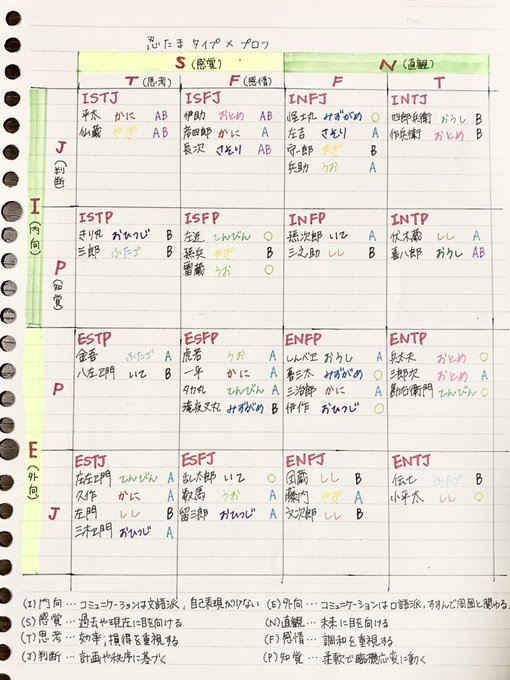 忍たま タイプ × プロフ
S (感覚) N (直観)
T (思考) F (感情) F T
I (内向)
J (判断)
ISTJ
平太 かに AB
仙蔵 やぎ AB
ISFJ
伊助 おとめ AB
彦四郎 かに A
長次 さそり AB
INFJ
怪士丸 みずがめ O
左吉 さそり A
守一郎 やぎ B
兵助 うお A
INTJ
四郎兵衛 おうし B
作兵衛 おとめ B
P (知覚)
ISTP
きり丸 おひつじ B
三郎 ふたご B
ISFP
左近 てんびん O
孫兵 やぎ B
雷蔵 うお O
INFP
孫次郎 いて A
三之助 しし B
INTP
伏木蔵 しし A
喜八郎 おうし AB
E (外向)
P
ESTP
金吾 ふたご A
八左ヱ門 いて B
ESFP
虎若 うお A
一平 かに A
タカ丸 てんびん A
滝夜叉丸 みずがめ B
ENFP
しんべヱ おうし A
喜三太 みずがめ O
三治郎 かに A
伊作 おひつじ O
ENTP
兵太夫 おとめ O
三郎次 おとめ A
勘右衛門 てんびん O
J
ESTJ
庄左ヱ門 てんびん A
久作 かに A
左門 しし B
三木ヱ門 おひつじ A
ESFJ
乱太郎 いて O
数馬 うお A
留三郎 おひつじ A
ENFJ
団蔵 しし B
藤内 やぎ A
文次郎 しし B
ENTJ
伝七 ふたご B
小平太 しし O
(I) 内向 … コミュニケーションは文語派，自己表現が少ない (E) 外向 … コミュニケーションは口語派，すすんで周囲と関わる
(S) 感覚 … 過去や現在に目を向ける (N) 直観 … 未来に目を向ける
(T) 思考 … 効率，損得を重視する (F) 感情 … 調和を重視する
(J) 判断 … 計画や秩序に基づく (P) 知覚 … 柔軟で臨機応変に動く